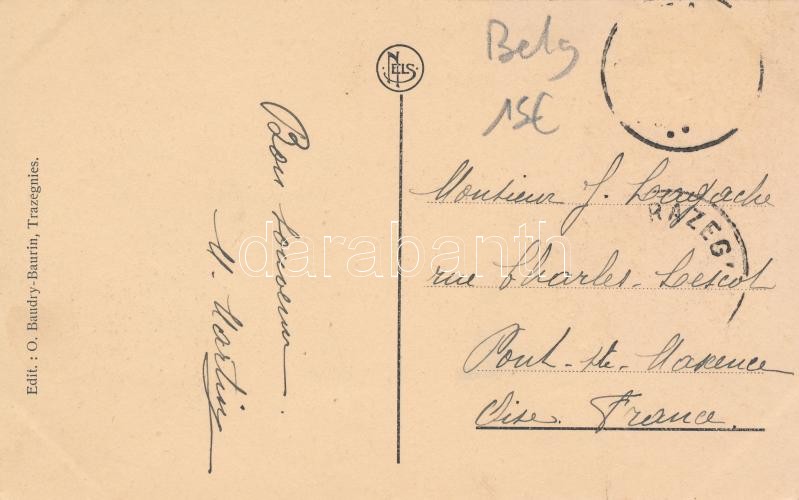 Edit. : O. Baudry-Baurin, Trazegnies.
Bon Souvenir.
M. Martin
NELS
Belg
15€
Monsieur J.
RAZEG
rue Charles-Lescot
Pont-Ste-Maxence
Oise. France.
darabanth